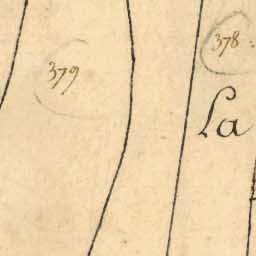 378.
379
La